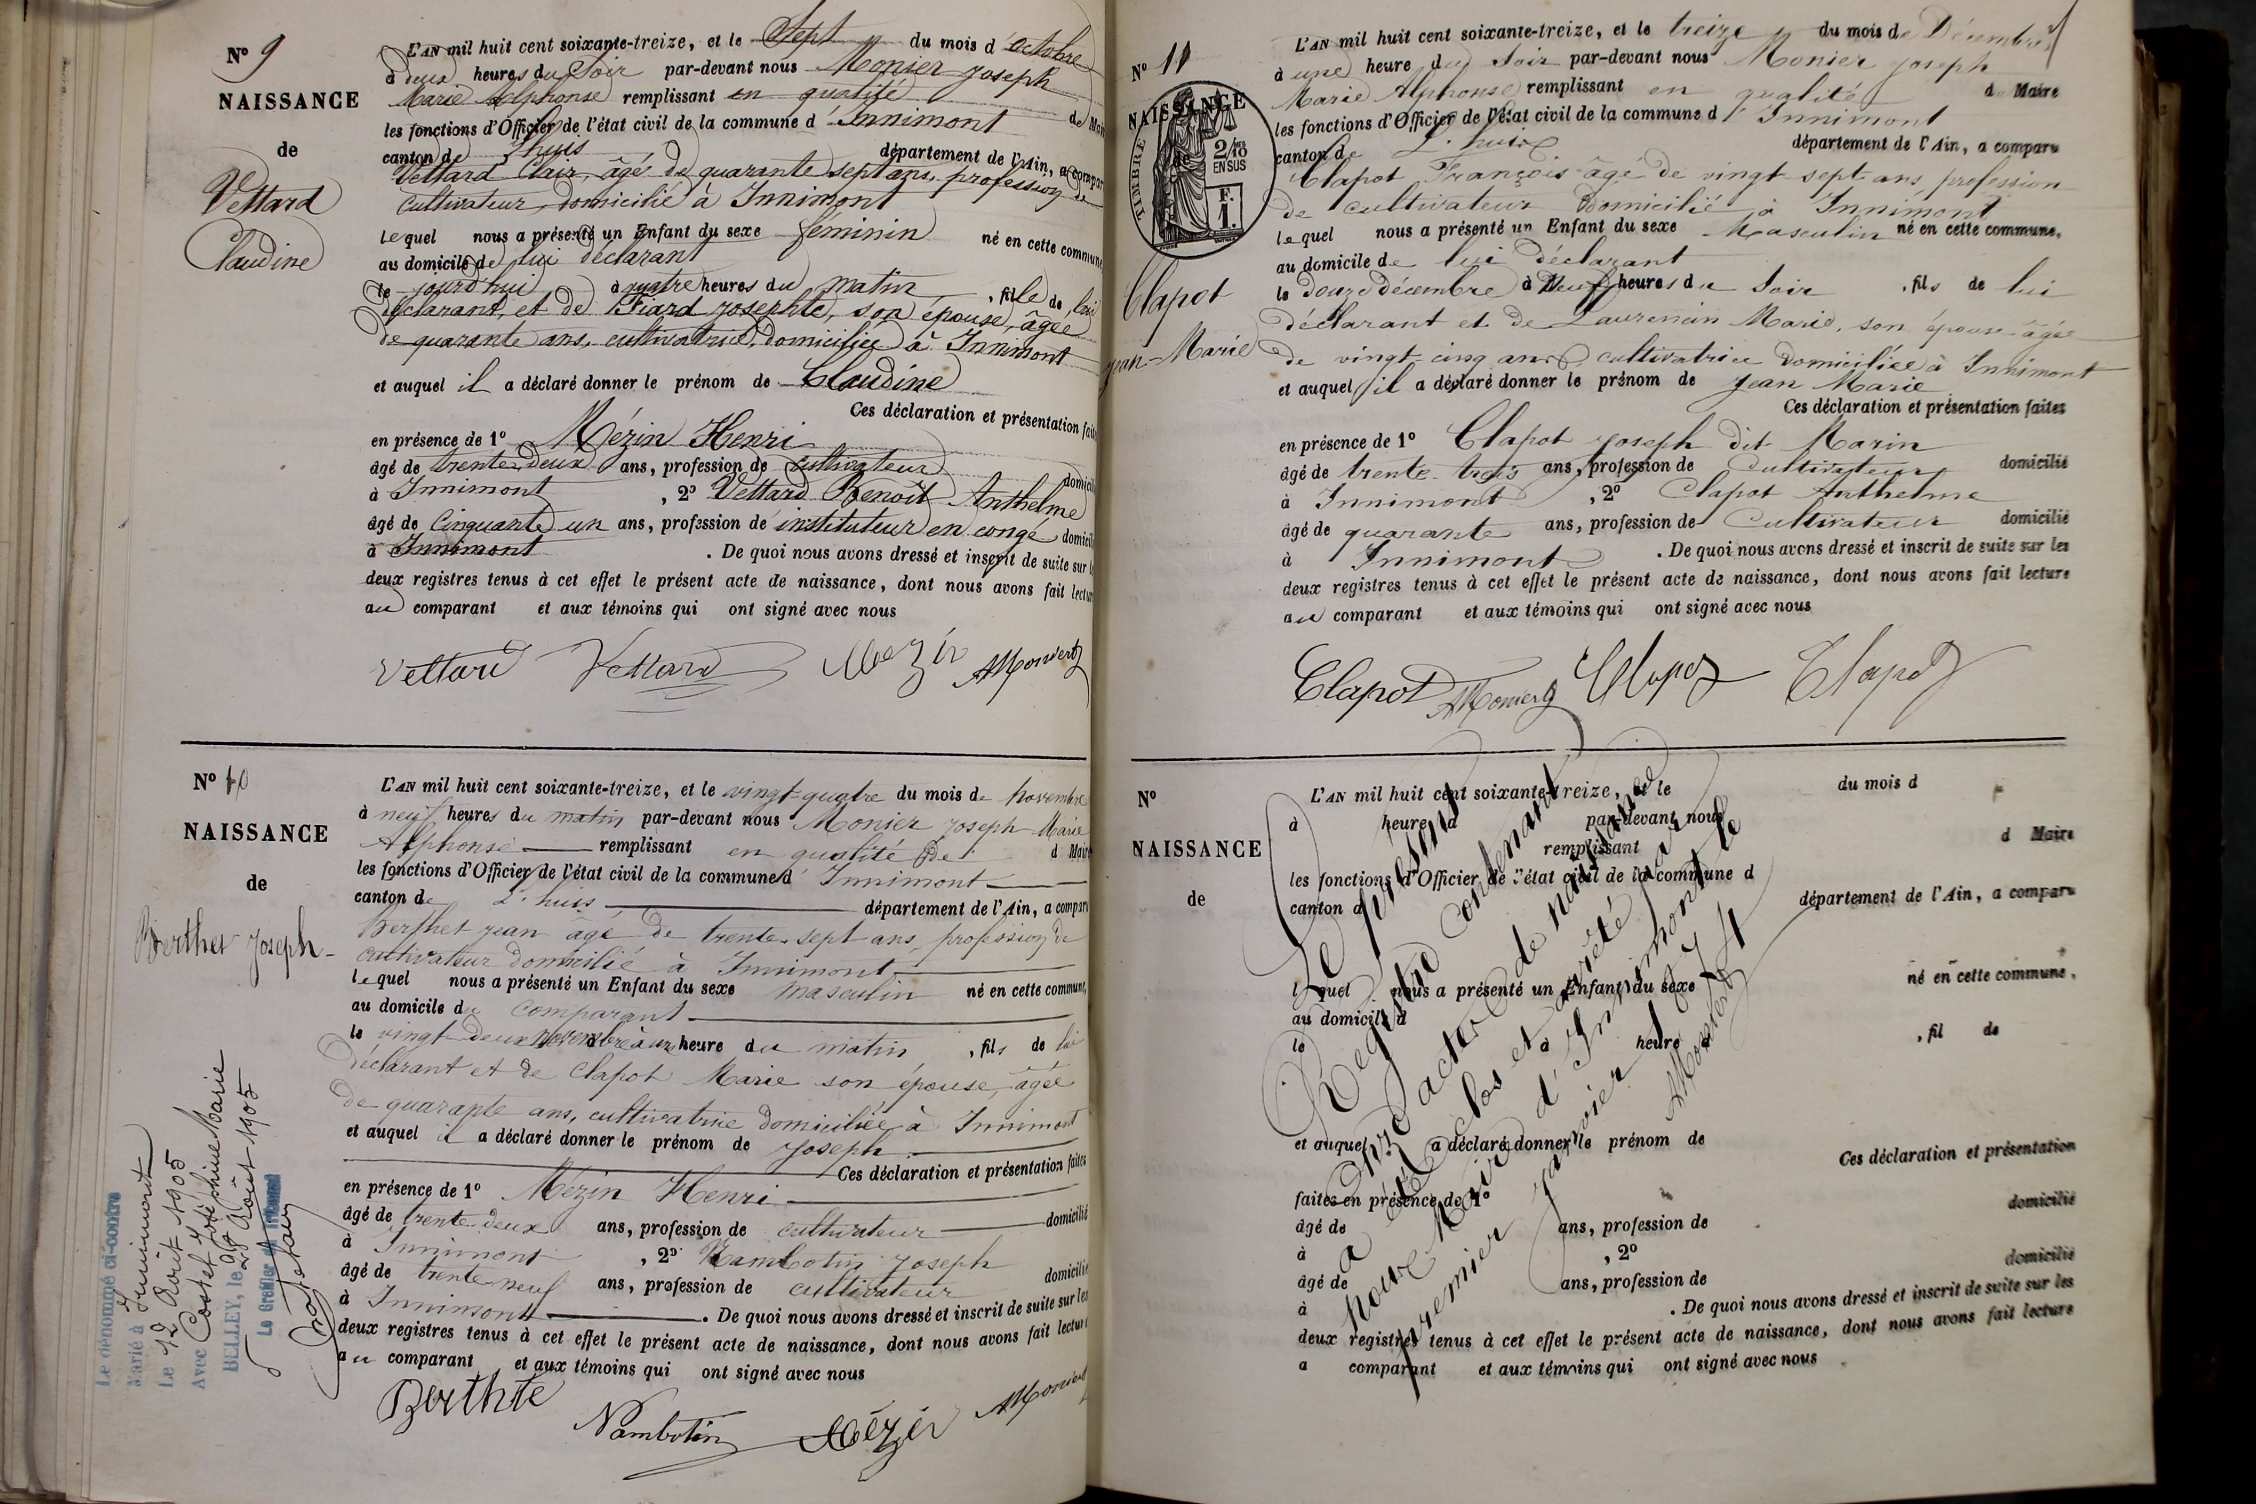 N° 9
NAISSANCE
de
Vettard
Claudine
L'AN mil huit cent soixante-treize, et le Sept du mois d'octobre
à deux heures du Soir par-devant nous Monier Joseph
Marie Alphonse remplissant en qualité de Mai
les fonctions d'Officier de l'état civil de la commune d'Innimont
canton de L'huis département de l'Ain, a compar
Vettard Clair, âgé de quarante sept ans, profession de
cultivateur domicilié à Innimont
lequel nous a présenté un Enfant du sexe féminin né en cette commune
au domicile de lui déclarant
le jourd'hui à quatre heures du matin, fille de lui
déclarant, et de Fiard Josephte, son épouse, âgée
de quarante ans, cultivatrice, domiciliée à Innimont
et auquel il a déclaré donner le prénom de Claudine
Ces déclaration et présentation fait
en présence de 1° Mézin Henri
âgé de trente deux ans, profession de cultivateur domicili
à Innimont, 2° Vettard Benoît Anthelme
âgé de Cinquante un ans, profession de instituteur en congé domicil
à Innimont. De quoi nous avons dressé et inscrit de suite sur l
deux registres tenus à cet effet le présent acte de naissance, dont nous avons fait lectur
au comparant et aux témoins qui ont signé avec nous
Vettard Vettard Mézin AMonier
N° 10
NAISSANCE
de
Berthet Joseph
L'AN mil huit cent soixante-treize, et le vingt-quatre du mois de novembre
à neuf heures du matin par-devant nous Monier Joseph Marie
Alphonse remplissant en qualité de d Maire
les fonctions d'Officier de l'état civil de la commune d'Innimont
canton de L'huis département de l'Ain, a comparu
Berthet Jean âgé de trente-sept ans, profession de
cultivateur domicilié à Innimont
lequel nous a présenté un Enfant du sexe masculin né en cette commune,
au domicile du comparant
le vingt deux novembre à une heure du matin, fils de lui
déclarant et de Clapot Marie son épouse, âgée
de quarante ans, cultivatrice domiciliée à Innimont
et auquel il a déclaré donner le prénom de Joseph
Ces déclaration et présentation faites
en présence de 1° Mézin Henri
âgé de trente deux ans, profession de cultivateur domicilié
à Innimont, 2° Nambotin Joseph
âgé de trente neuf ans, profession de cultivateur domicilié
à Innimont. De quoi nous avons dressé et inscrit de suite sur les
deux registres tenus à cet effet le présent acte de naissance, dont nous avons fait lecture
au comparant et aux témoins qui ont signé avec nous
Berthte Nambotin Mézin AMonier
Le dénommé ci-contre
Marié à Innimont
Le 12 Août 1905
Avec Costet Joséphine Marie
BELLEY, le 28 Août 1905
Le Greffier du Tribunal
N° 11
NAISSANCE
de
TIMBRE
2/10 EN SUS
F. 1.
Clapot
Jean-Marie
L'AN mil huit cent soixante-treize, et le treize du mois de Décembre
à une heure du Soir par-devant nous Monier Joseph
Marie Alphonse remplissant en qualité de Maire
les fonctions d'Officier de l'état civil de la commune d'Innimont
canton de L'huis département de l'Ain, a comparu
Clapot François âgé de vingt-sept ans, profession
de cultivateur domicilié à Innimont
lequel nous a présenté un Enfant du sexe Masculin né en cette commune,
au domicile de lui déclarant
le douze décembre à neuf heures du Soir, fils de lui
déclarant et de Laurencin Marie, son épouse âgée
de vingt-cinq ans cultivatrice domiciliée à Innimont
et auquel il a déclaré donner le prénom de Jean Marie
Ces déclaration et présentation faites
en présence de 1° Clapot Joseph dit Marin
âgé de trente-trois ans, profession de Cultivateur domicilié
à Innimont, 2° Clapot Anthelme
âgé de quarante ans, profession de Cultivateur domicilié
à Innimont. De quoi nous avons dressé et inscrit de suite sur les
deux registres tenus à cet effet le présent acte de naissance, dont nous avons fait lecture
au comparant et aux témoins qui ont signé avec nous
Clapot AMonier Clapot Clapot
N°
NAISSANCE
de
L'AN mil huit cent soixante-treize, et le du mois d
à heure d par-devant nous
remplissant d Maire
les fonctions d'Officier de l'état civil de la commune d
canton d département de l'Ain, a comparu
l quel nous a présenté un Enfant du sexe né en cette commune,
au domicile d
le à heure d, fil de
et auquel a déclaré donner le prénom de
Ces déclaration et présentation
faites en présence de 1°
âgé de ans, profession de domicilié
à, 2°
âgé de ans, profession de domicilié
à. De quoi nous avons dressé et inscrit de suite sur les
deux registres tenus à cet effet le présent acte de naissance, dont nous avons fait lecture
a comparant et aux témoins qui ont signé avec nous
Le présent
Registre contenant
onze actes de naissance
a été clos et arrêté par
nous Maire d'Innimont le
premier janvier 1874
AMonier